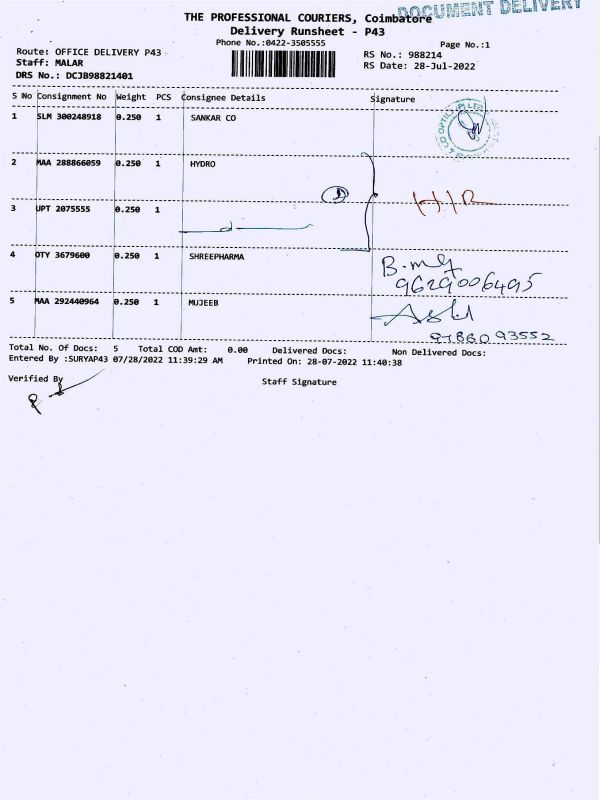 DOCUMENT DELIVERY
THE PROFESSIONAL COURIERS, Coimbatore
Delivery Runsheet - P43
Phone No.:0422-3505555
Page No.:1
Route: OFFICE DELIVERY P43
RS No.: 988214
Staff: MALAR
RS Date: 28-Jul-2022
DRS No.: DCJB98821401
S No Consignment No Weight PCS Consignee Details Signature
1 SLM 300248918 0.250 1 SANKAR CO
2 MAA 288866059 0.250 1 HYDRO
H/R
3 UPT 2075555 0.250 1
4 OTY 3679600 0.250 1 SHREEPHARMA
9629006495
5 MAA 292440964 0.250 1 MUJEEB
Total No. Of Docs: 5 Total COD Amt: 0.00 Delivered Docs: Non Delivered Docs:
Entered By :SURYAP43 07/28/2022 11:39:29 AM Printed On: 28-07-2022 11:40:38
Verified By
Staff Signature